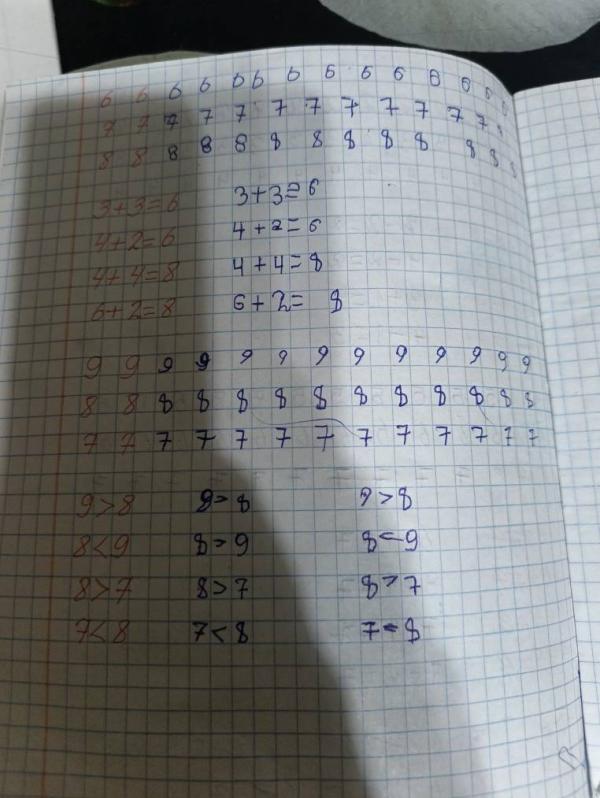 6 6 6 6 6 6 6 6 6 6 6 6 6 6
7 7 7 7 7 7 7 7 7 7 7 7 7 8
8 8 8 8 8 8 8 8 8 8 8 8 8
3+3=6 3+3=6
4+2=6 4+2=6
4+4=8 4+4=8
6+2=8 6+2= 8
9 9 9 9 9 9 9 9 9 9 9 9 9
8 8 8 8 8 8 8 8 8 8 8 8 8
7 7 7 7 7 7 7 7 7 7 7 7 7
9>8 9>8 9>8
8<9 8>9 8<9
8>7 8>7 8>7
7<8 7<8 7=8